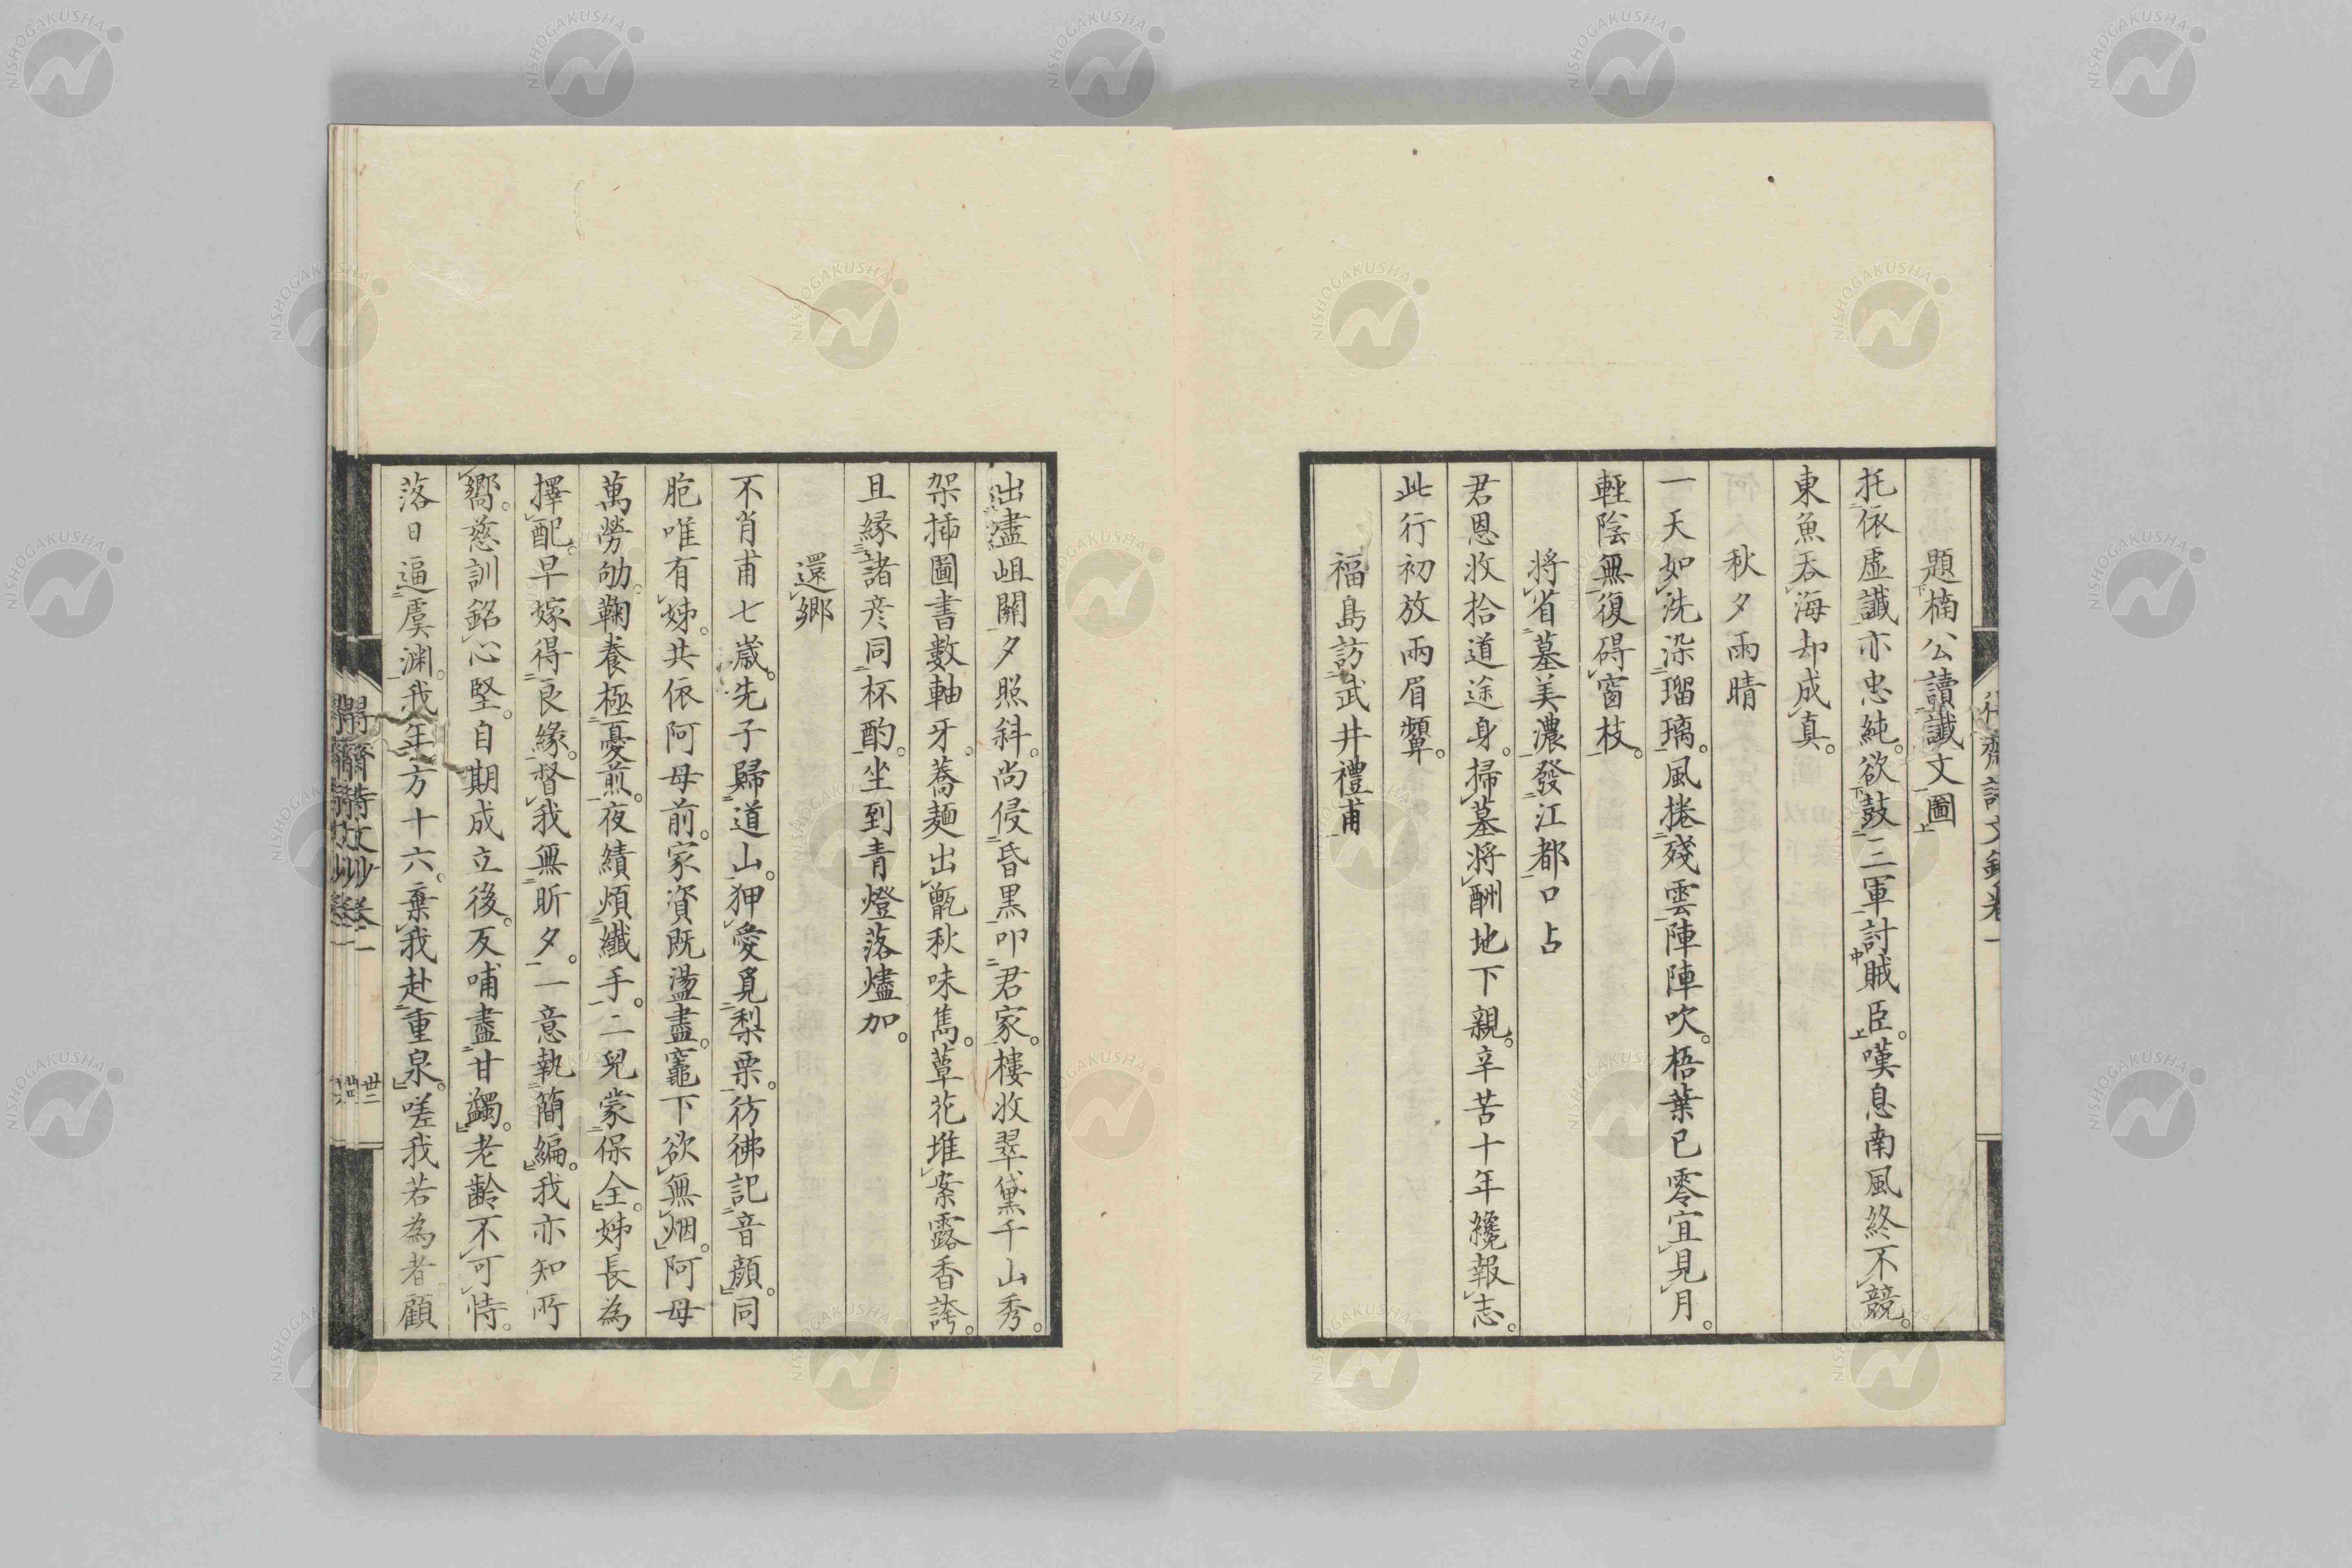 題楠公讀讖文圖
托依虛讖亦忠純。欲鼓三軍討賊臣。嘆息南風終不競。
東魚吞海却成真。
秋夕雨晴
一天如洗染瑠璃。風捲殘雲陣陣吹。梧葉已零宜見月。
輕陰無復碍窗枝。
將省墓美濃發江都口占
君恩收拾道途身。掃墓將酬地下親。辛苦十年纔報志。
此行初放兩眉顰。
福島訪武井禮甫
出盡岨關夕照斜。尚侵昏黑叩君家。樓收翠黛千山秀。
架插圖書數軸牙。蕎麵出甑秋味雋。蕈花堆案露香誇。
且緣諸彦同杯酌。坐到青燈落燼加。
還鄉
不肖甫七歲。先子歸道山。狎愛覓梨栗。彷彿記音顏。同
胞唯有姊。共依阿母前。家資既蕩盡。竈下欲無烟。阿母
萬勞劬。鞠養極憂煎。夜績煩纖手。二兒蒙保全。姊長為
擇配。早嫁得良緣。督我無昕夕。一意執簡編。我亦知所
嚮。慈訓銘心堅。自期成立後。反哺盡甘蠲。老齡不可恃。
落日逼虞淵。我年方十六。棄我赴重泉。嗟我若為者顧
齋詩文鈔卷一
卅三
NISHOGAKUSHA